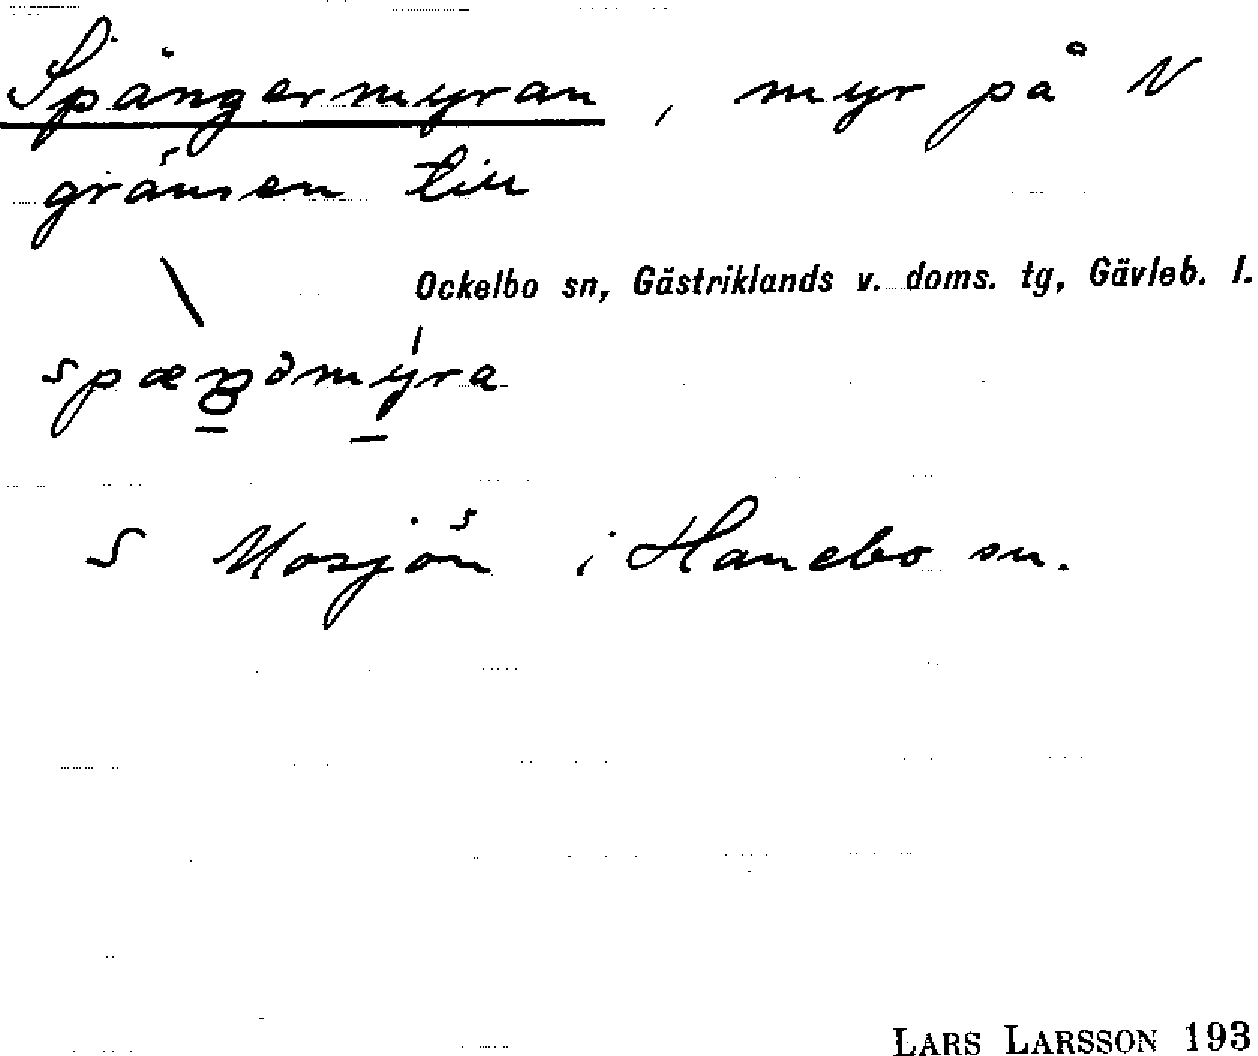 Spängermyran, myr på N
gränsen till
Ockelbo sn, Gästriklands v. doms. tg, Gävleb. l.
S Mosjön i Hanebo sn.
LARS LARSSON 193